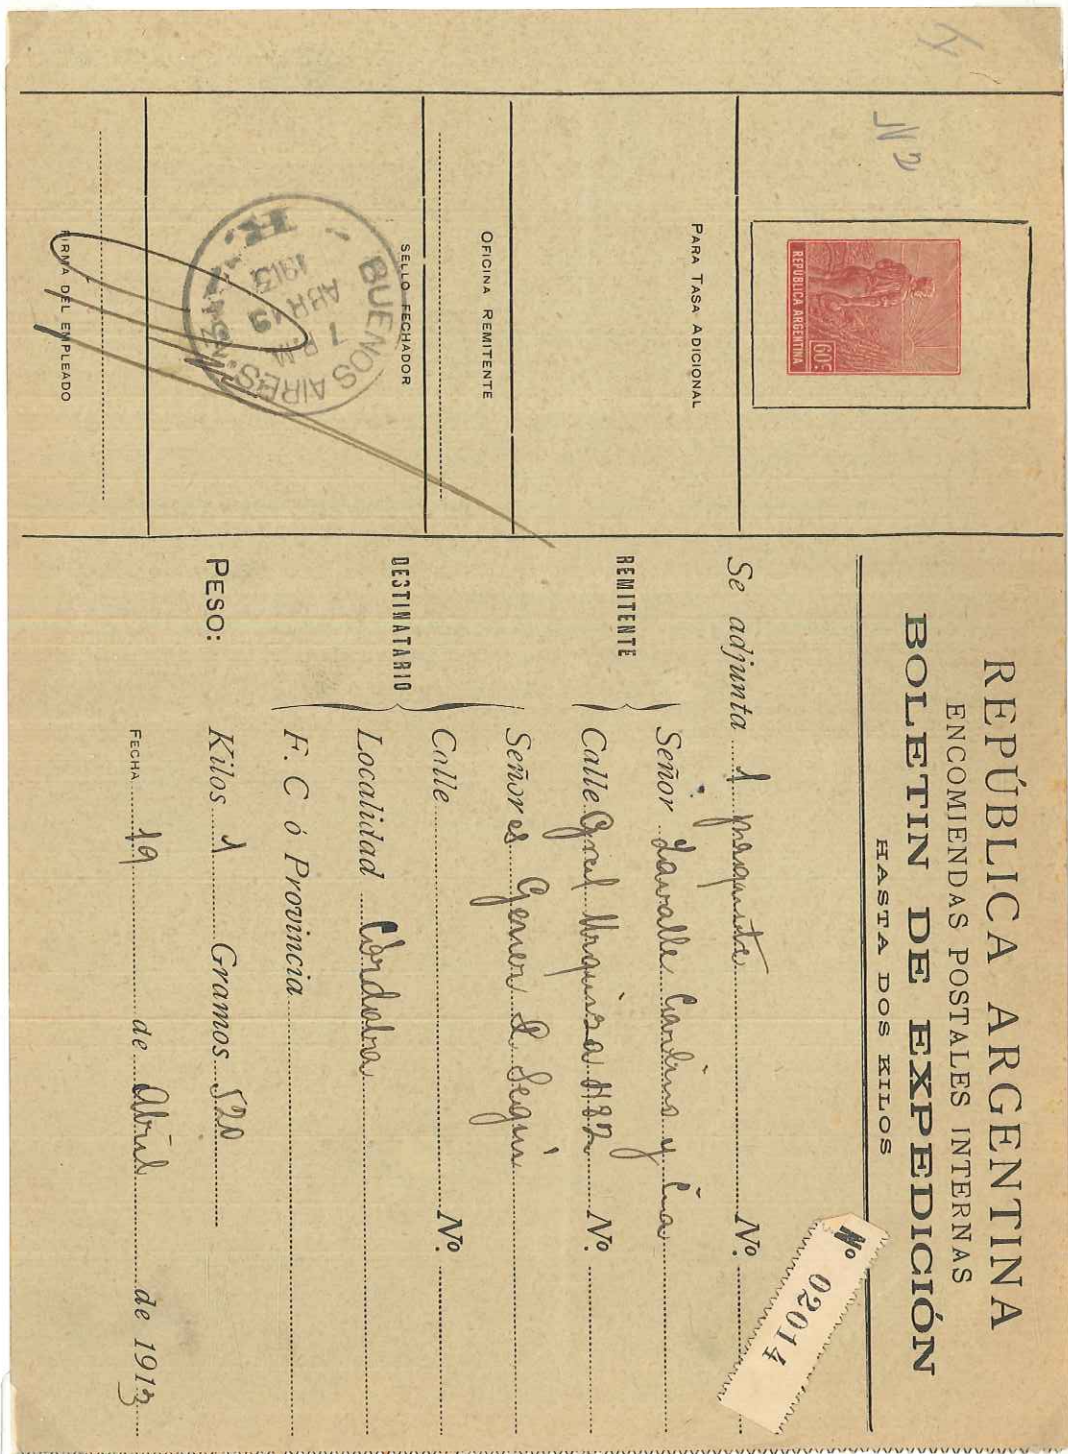 REPÚBLICA ARGENTINA
ENCOMIENDAS POSTALES INTERNAS
BOLETIN DE EXPEDICIÓN
HASTA DOS KILOS
Nº 02014
Se adjunta 1 paquete Nº.
REMITENTE
Señor Lavalle Carlins y Cía
Calle Gral Urquiza 1182 Nº.
DESTINATARIO
Señores Gener & Seguí
Calle Nº.
Localidad Córdoba
F. C ó Provincia
PESO: Kilos 1 Gramos 520
FECHA 19 de Abril de 1913
Nº 2
REPUBLICA ARGENTINA
60c
PARA TASA ADICIONAL
OFICINA REMITENTE
SELLO FECHADOR
BUENOS AIRES
7 P.M.
ABR 19
1913
FIRMA DEL EMPLEADO